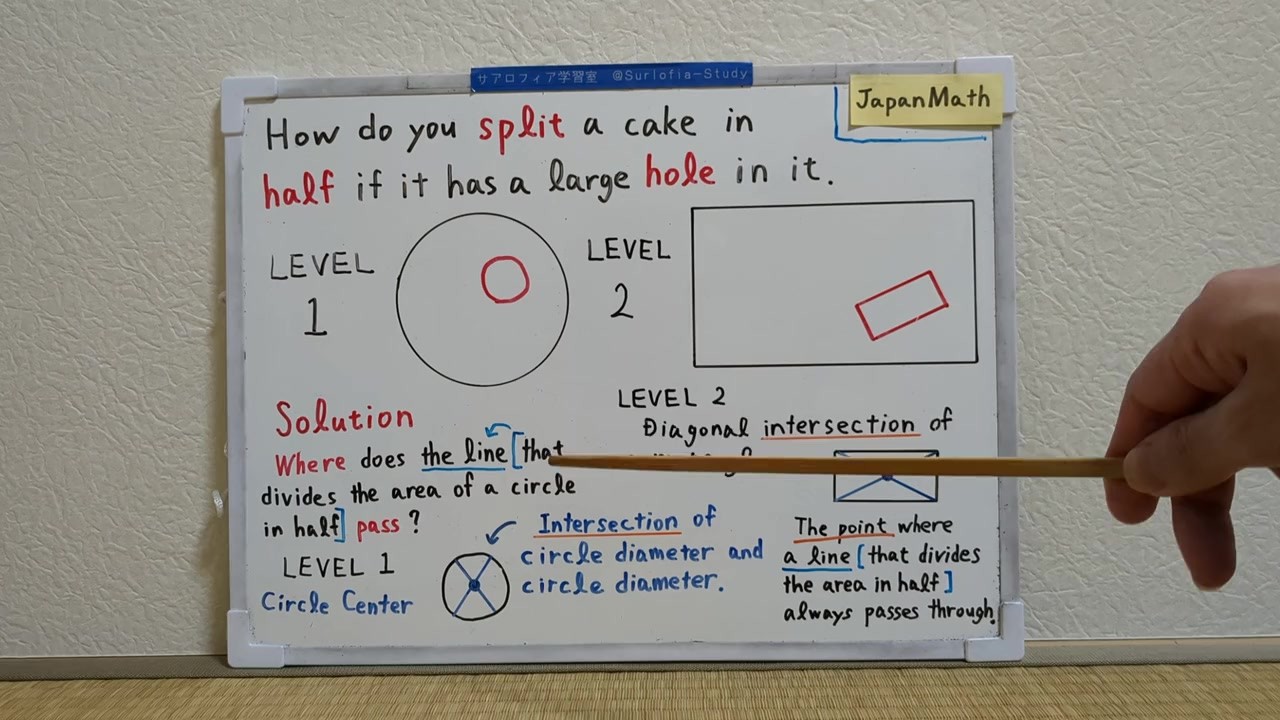 サアロフィア学習室 @Surlofia-Study
JapanMath
How do you split a cake in
half if it has a large hole in it.
LEVEL
1
LEVEL
2
Solution
Where does the line [that
divides the area of a circle
in half] pass?
LEVEL 1
Circle Center
Intersection of
circle diameter and
circle diameter.
LEVEL 2
Diagonal intersection of
The point where
a line [that divides
the area in half]
always passes through.